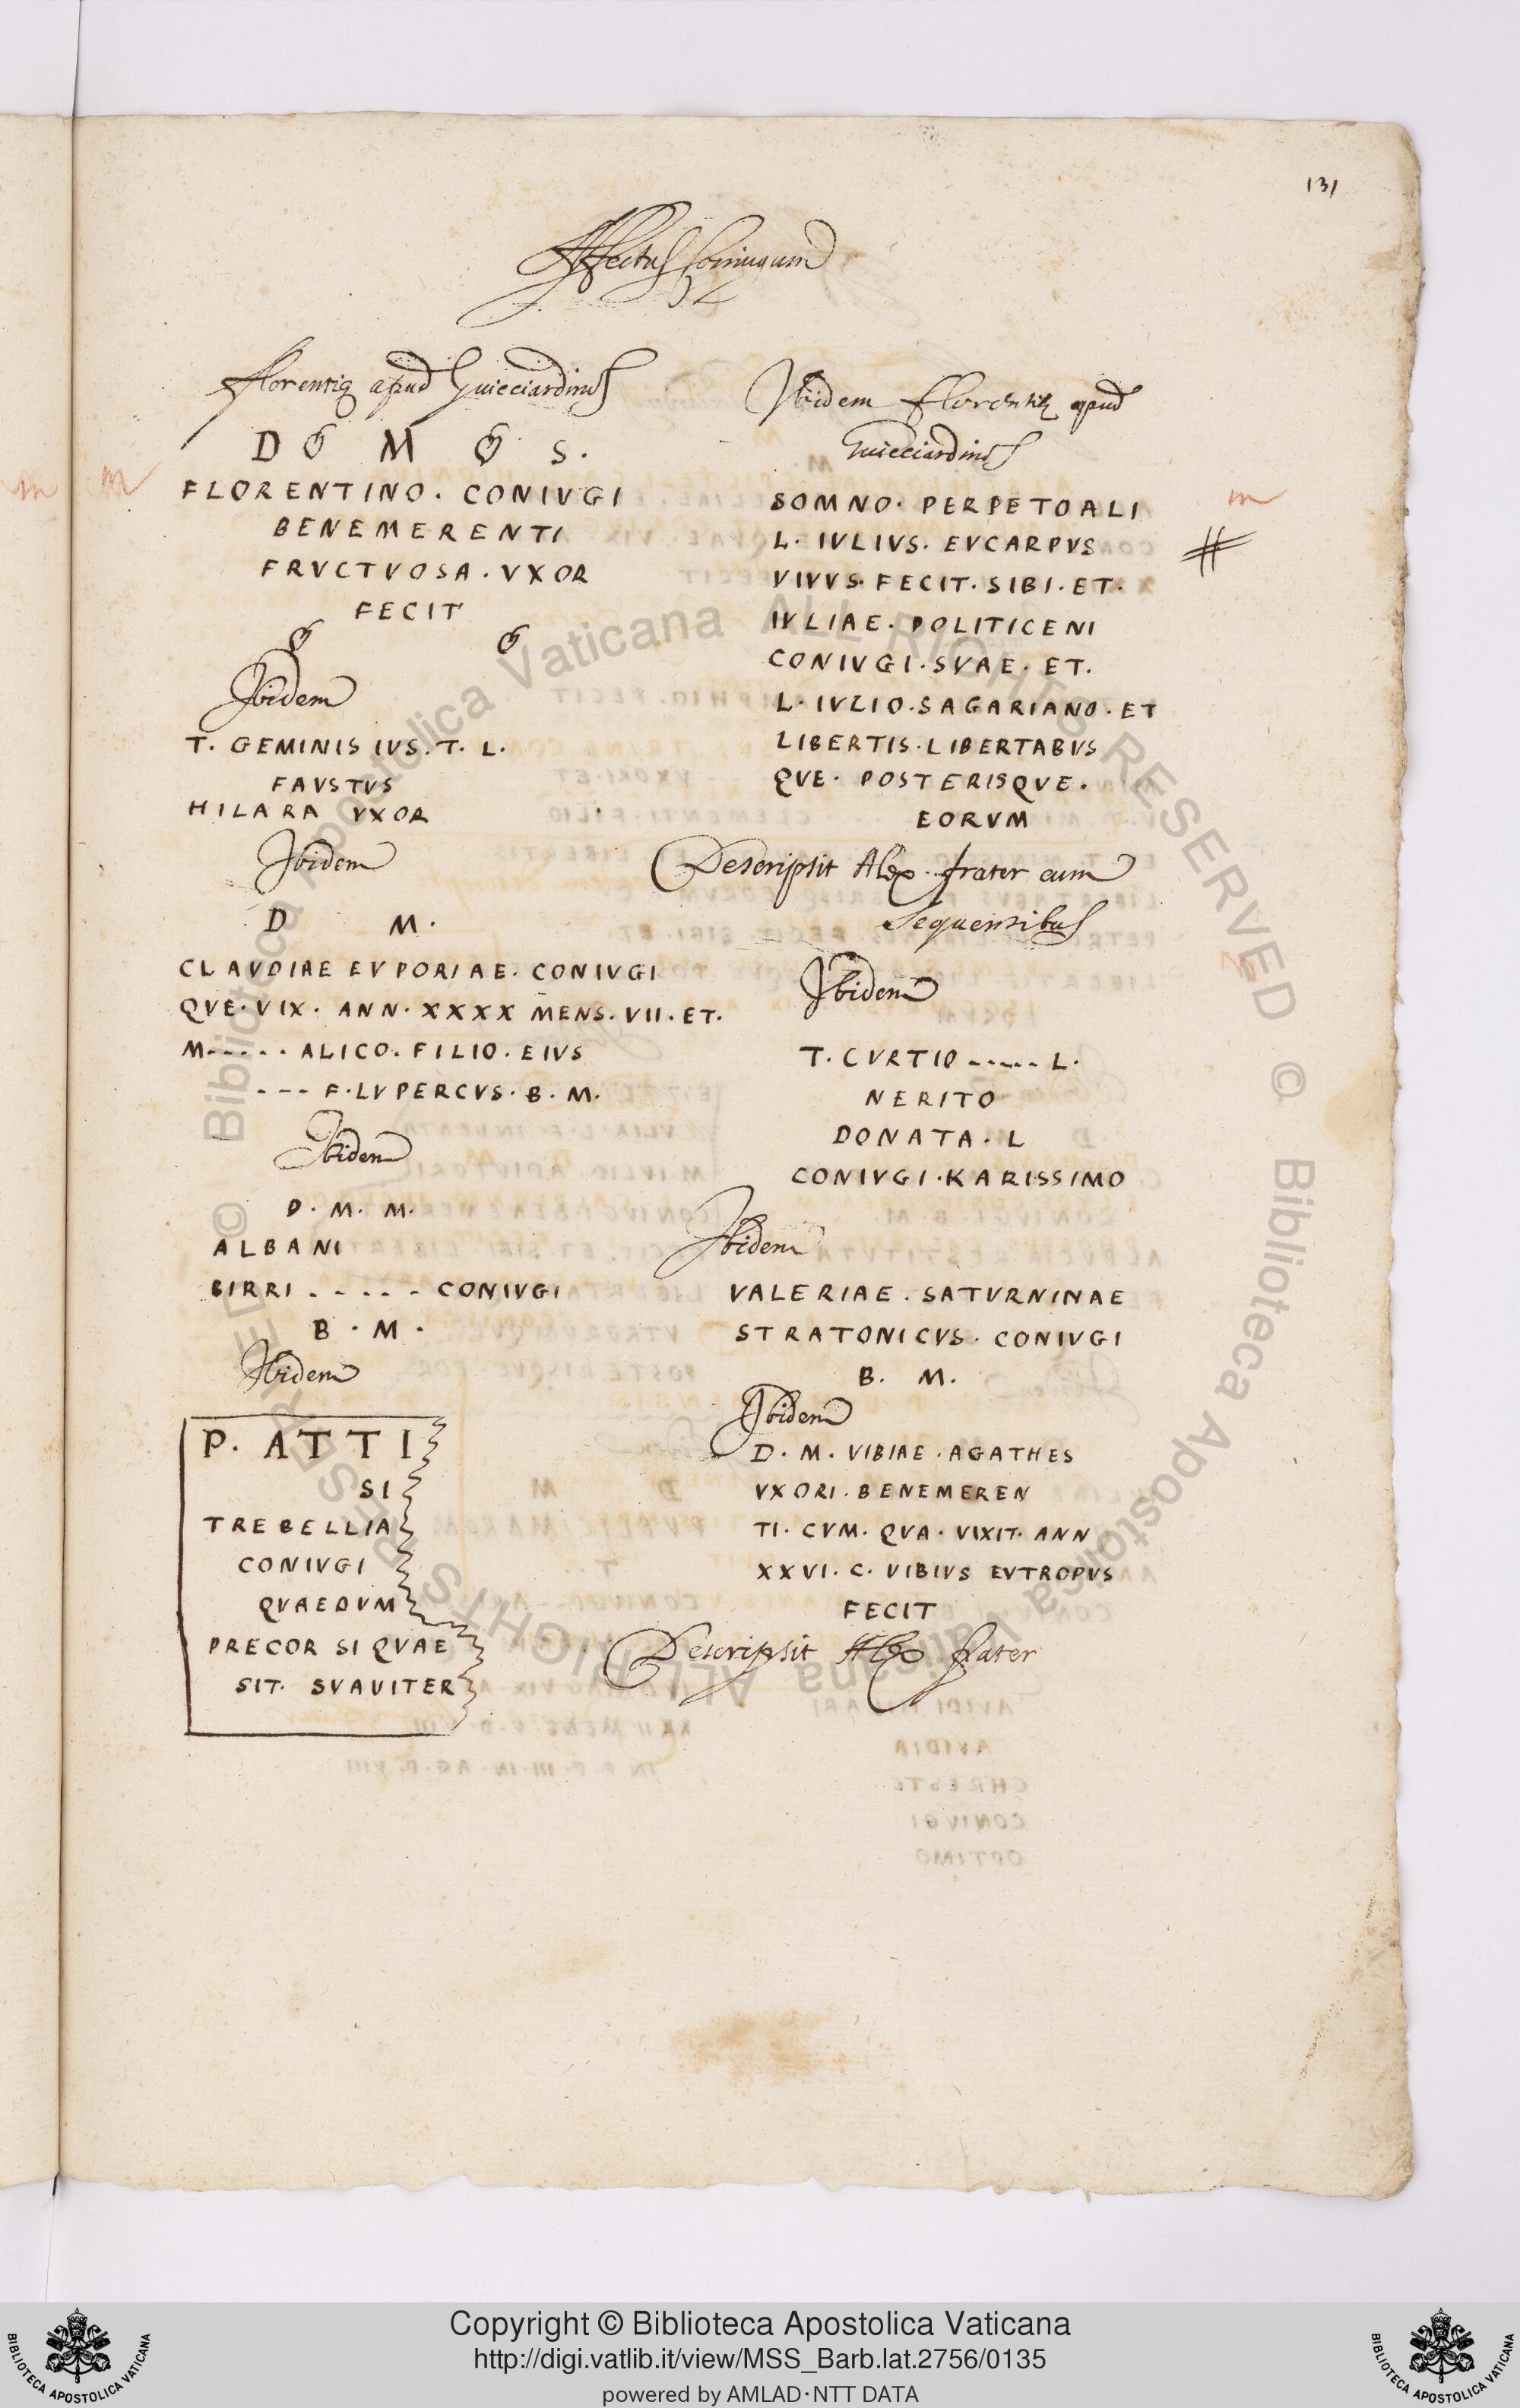 131
Affectus Coniugum
Florentię apud Guicciardinos
D M S.
FLORENTINO. CONIVGI
BENEMERENTI
FRVCTVOSA. VXOR
FECIT
Ibidem
T. GEMINISIVS. T. L.
FAVSTVS
HILARA VXOR
Ibidem
D M.
CLAVDIAE EVPORIAE. CONIVGI
QVE. VIX. ANN. XXXX MENS. VII. ET.
M----- ALICO. FILIO. EIVS
--- F. LVPERCVS. B. M.
Ibidem
D. M. M.
ALBANI
BIRRI ----- CONIVGI
B. M.
Ibidem
P. ATTI
SI
TREBELLIA
CONIVGI
QVAEDVM
PRECOR SI QVAE
SIT. SVAVITER
Ibidem Florentię apud
Guicciardinos
m
m
m
SOMNO. PERPETOALI
L. IVLIVS. EVCARPVS
VIVVS. FECIT. SIBI. ET.
IVLIAE. POLITICENI
CONIVGI. SVAE. ET.
L. IVLIO. SAGARIANO. ET
LIBERTIS. LIBERTABVS
QVE. POSTERISQVE.
EORVM
Descripsit Alex. frater cum
sequentibus
Ibidem
T. CVRTIO ----- L.
NERITO
DONATA. L
CONIVGI. KARISSIMO
Ibidem
VALERIAE. SATVRNINAE
STRATONICVS. CONIVGI
B. M.
Ibidem
D. M. VIBIAE. AGATHES
VXORI. BENEMEREN
TI. CVM. QVA. VIXIT. ANN
XXVI. C. VIBIVS EVTROPVS
FECIT
Descripsit Alex frater
© Biblioteca Apostolica Vaticana ALL RIGHTS RESERVED
© Biblioteca Apostolica Vaticana ALL RIGHTS RESERVED
Copyright © Biblioteca Apostolica Vaticana
http://digi.vatlib.it/view/MSS_Barb.lat.2756/0135
powered by AMLAD·NTT DATA
BIBLIOTECA APOSTOLICA VATICANA
BIBLIOTECA APOSTOLICA VATICANA